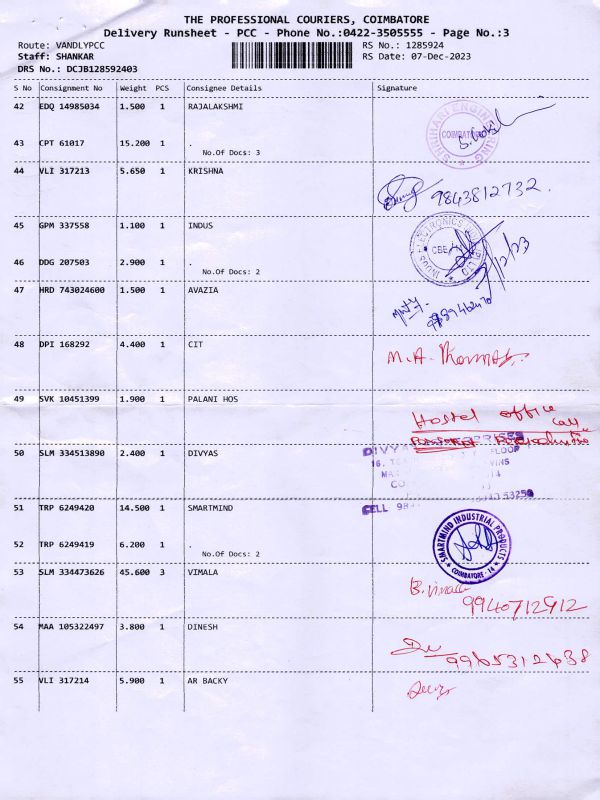 THE PROFESSIONAL COURIERS, COIMBATORE
Delivery Runsheet - PCC - Phone No.:0422-3505555 - Page No.:3
Route: VANDLYPCC RS No.: 1285924
Staff: SHANKAR RS Date: 07-Dec-2023
DRS No.: DCJB128592403
S No Consignment No Weight PCS Consignee Details Signature
42 EDQ 14985034 1.500 1 RAJALAKSHMI
COIMBATORE
43 CPT 61017 15.200 1 .
No.Of Docs: 3
44 VLI 317213 5.650 1 KRISHNA
9843812732.
45 GPM 337558 1.100 1 INDUS
46 DDG 207503 2.900 1 .
No.Of Docs: 2
47 HRD 743024600 1.500 1 AVAZIA
48 DPI 168292 4.400 1 CIT
M.A. Thomas
49 SVK 10451399 1.900 1 PALANI HOS
Hostel office
call
50 SLM 334513890 2.400 1 DIVYAS
51 TRP 6249420 14.500 1 SMARTMIND
SMARTMIND INDUSTRIAL PRODUCTS
COIMBATORE - 14
52 TRP 6249419 6.200 1 .
No.Of Docs: 2
53 SLM 334473626 45.600 3 VIMALA
B. Vimala
9940712912
54 MAA 105322497 3.800 1 DINESH
9965312638
55 VLI 317214 5.900 1 AR BACKY